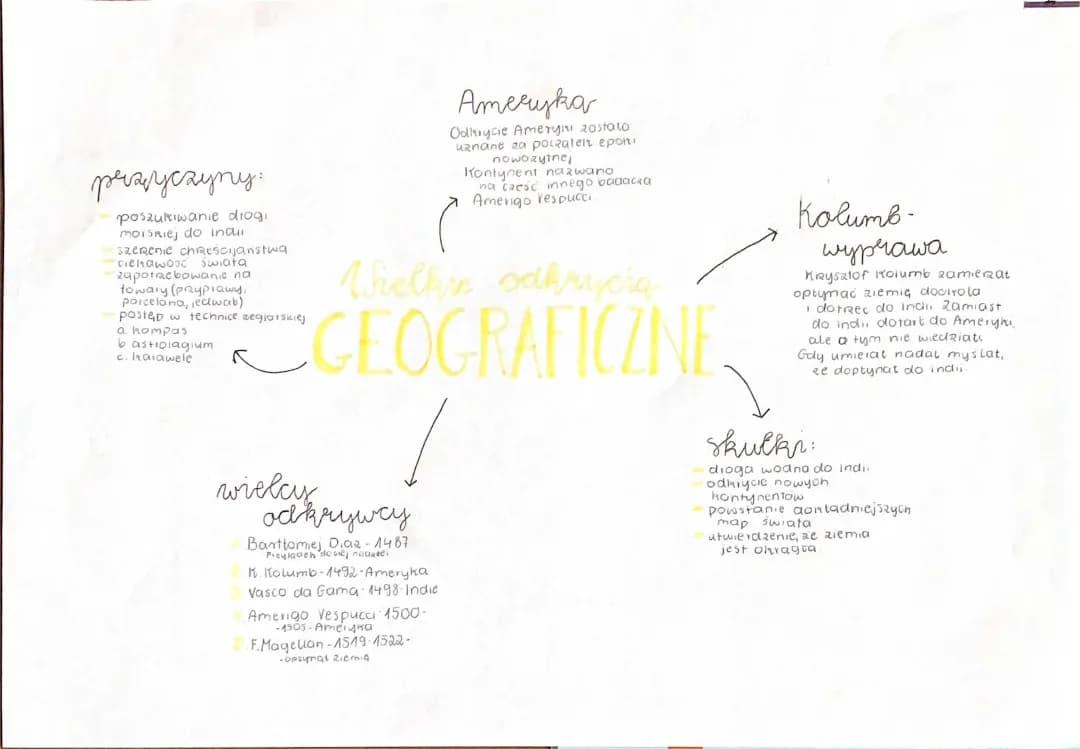 Wielkie odkrycia
GEOGRAFICZNE
Ameryka
Odkrycie Ameryki zostało
uznane za początek epoki
nowożytnej
Kontynent nazwano
na cześć innego badacza
Amerigo Vespucci
przyczyny:
poszukiwanie drogi
morskiej do Indii
szerenie chrześcijaństwa
ciekawość świata
zapotrzebowanie na
towary (przyprawy,
porcelana, jedwab)
postęp w technice żeglarskiej
a. kompas
b astrolagium
c. karawele
Kolumb -
wyprawa
Krzysztof Kolumb zamierzał
opłynąć ziemię dookoła
i dotrzeć do Indii. Zamiast
do Indii dotarł do Ameryki,
ale o tym nie wiedział.
Gdy umierał nadal myślał,
że dopłynął do Indii.
skutki:
droga wodna do Indii
odkrycie nowych
kontynentów
powstanie dokładniejszych
map świata
utwierdzenie, że ziemia
jest okrągła
wielcy
odkrywcy
Bartłomiej Diaz - 1487
Przylądek dobrej nadziei
K. Kolumb - 1492 - Ameryka
Vasco da Gama - 1498 - Indie
Amerigo Vespucci - 1500 -
- 1505 - Ameryka
F. Magellan - 1519 - 1522 -
- opłynął ziemię